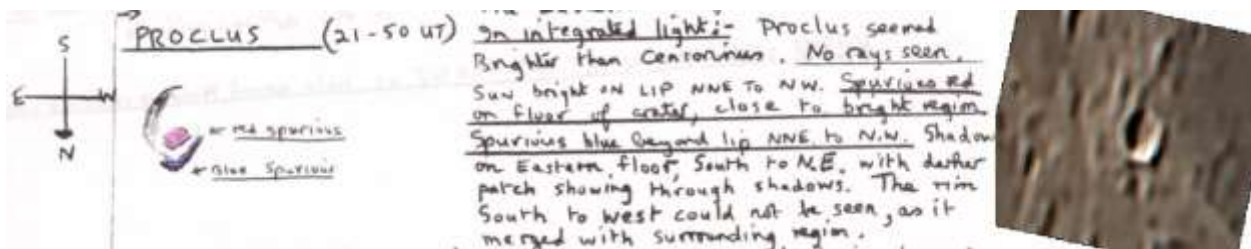 S
E W
N
PROCLUS (21-50 UT)
red spurious
Blue Spurious
In integrated light:- Proclus seemed
Brighter than Censorinus. No rays seen.
Sun bright ON LIP NNE TO NW. Spurious red
on floor of crater, close to bright region
Spurious blue beyond lip NNE. to N.W. Shadow
on Eastern floor, South to N.E, with darker
patch showing through shadows. The rim
South to west could not be seen, as it
merged with surrounding region.